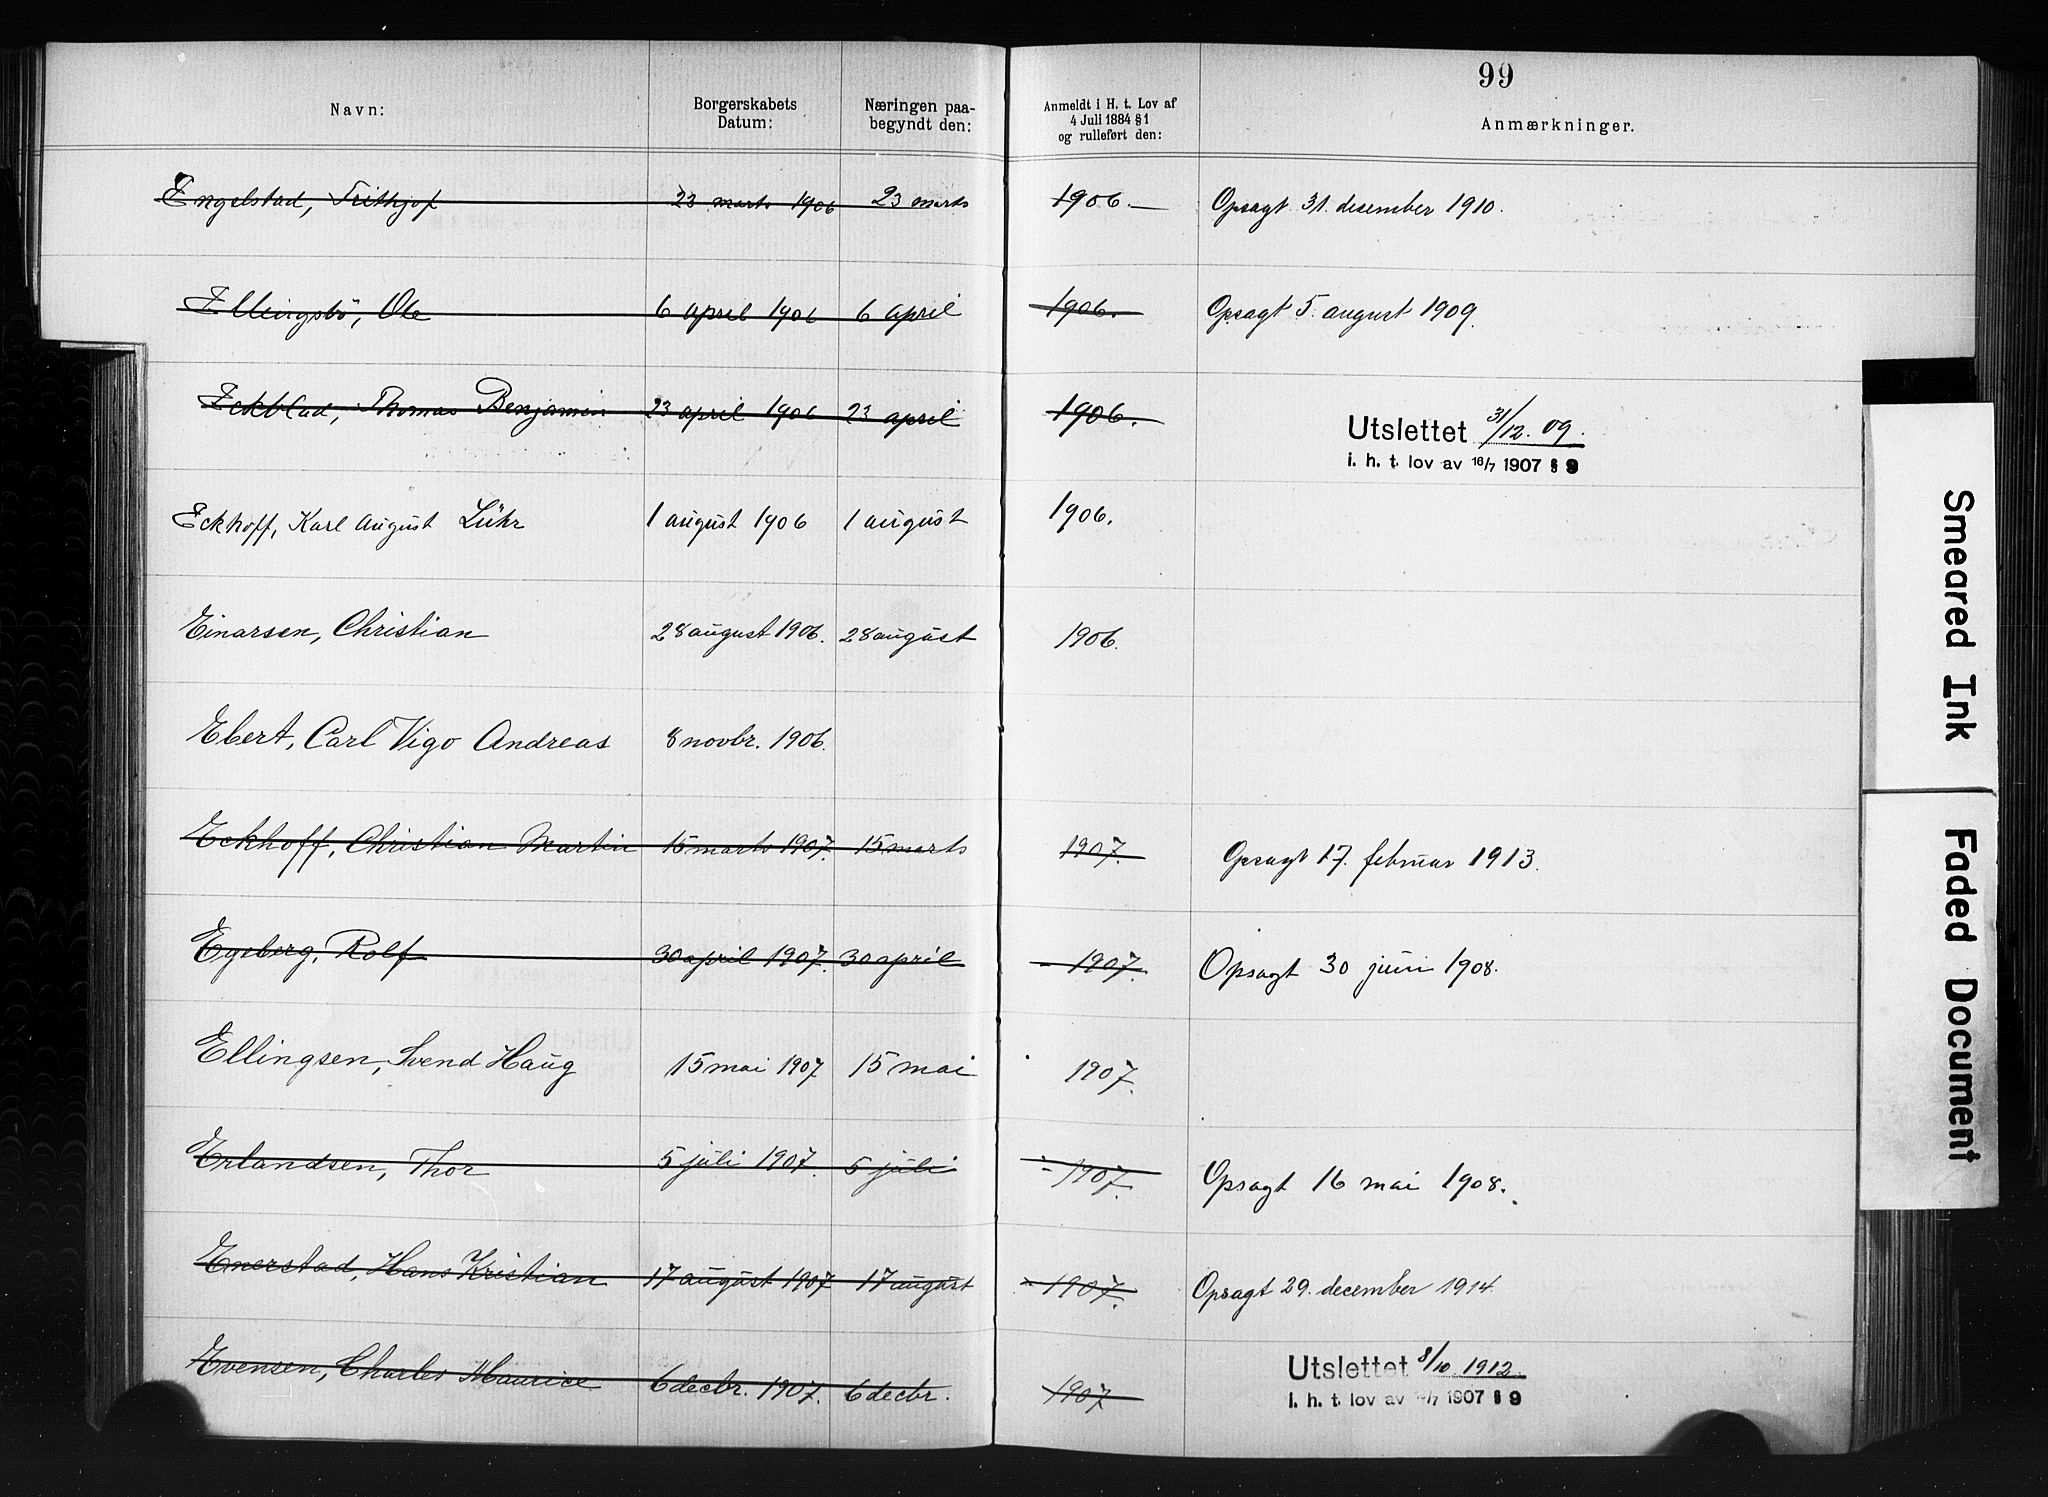 99
Navn:
Borgerskabets Datum:
Næringen paa-begyndt den:
Anmeldt i H. t. Lov af 4 Juli 1884 § 1 og rulleført den:
Anmærkninger.
Engelstad, Frithjof 23 marts 1906 23 marts 1906. Opsagt 31. desember 1910.
Ellingsbö, Ole 6 april 1906 6 april 1906. Opsagt 5. august 1909.
Eckblad, Thomas Benjamin 23 april 1906 23 april 1906. Utslettet 31/12. 09.
i. h. t. lov av 16/7 1907 § 9
Eckhoff, Karl August Lühr 1 august 1906 1 august 1906.
Einarsen, Christian 28 august 1906. 28 august 1906.
Ebert, Carl Vigo Andreas 8 novbr. 1906.
Eckhoff, Christian Martin 15 marts 1907. 15 marts 1907. Opsagt 17. februar 1913.
Egeberg, Rolf 30 april 1907. 30 april 1907. Opsagt 30 juni 1908.
Ellingsen, Svend Haug 15 mai 1907 15 mai 1907.
Erlandsen, Thor 5 juli 1907. 5 juli 1907. Opsagt 16 mai 1908.
Enerstad, Hans Kristian 17 august 1907 17 august 1907. Opsagt 29. december 1914.
Evensen, Charles Maurice 6 decbr. 1907. 6 decbr. 1907 Utslettet 8/10 1912.
i. h. t. lov av /7 1907 § 9
Smeared Ink
Faded Document